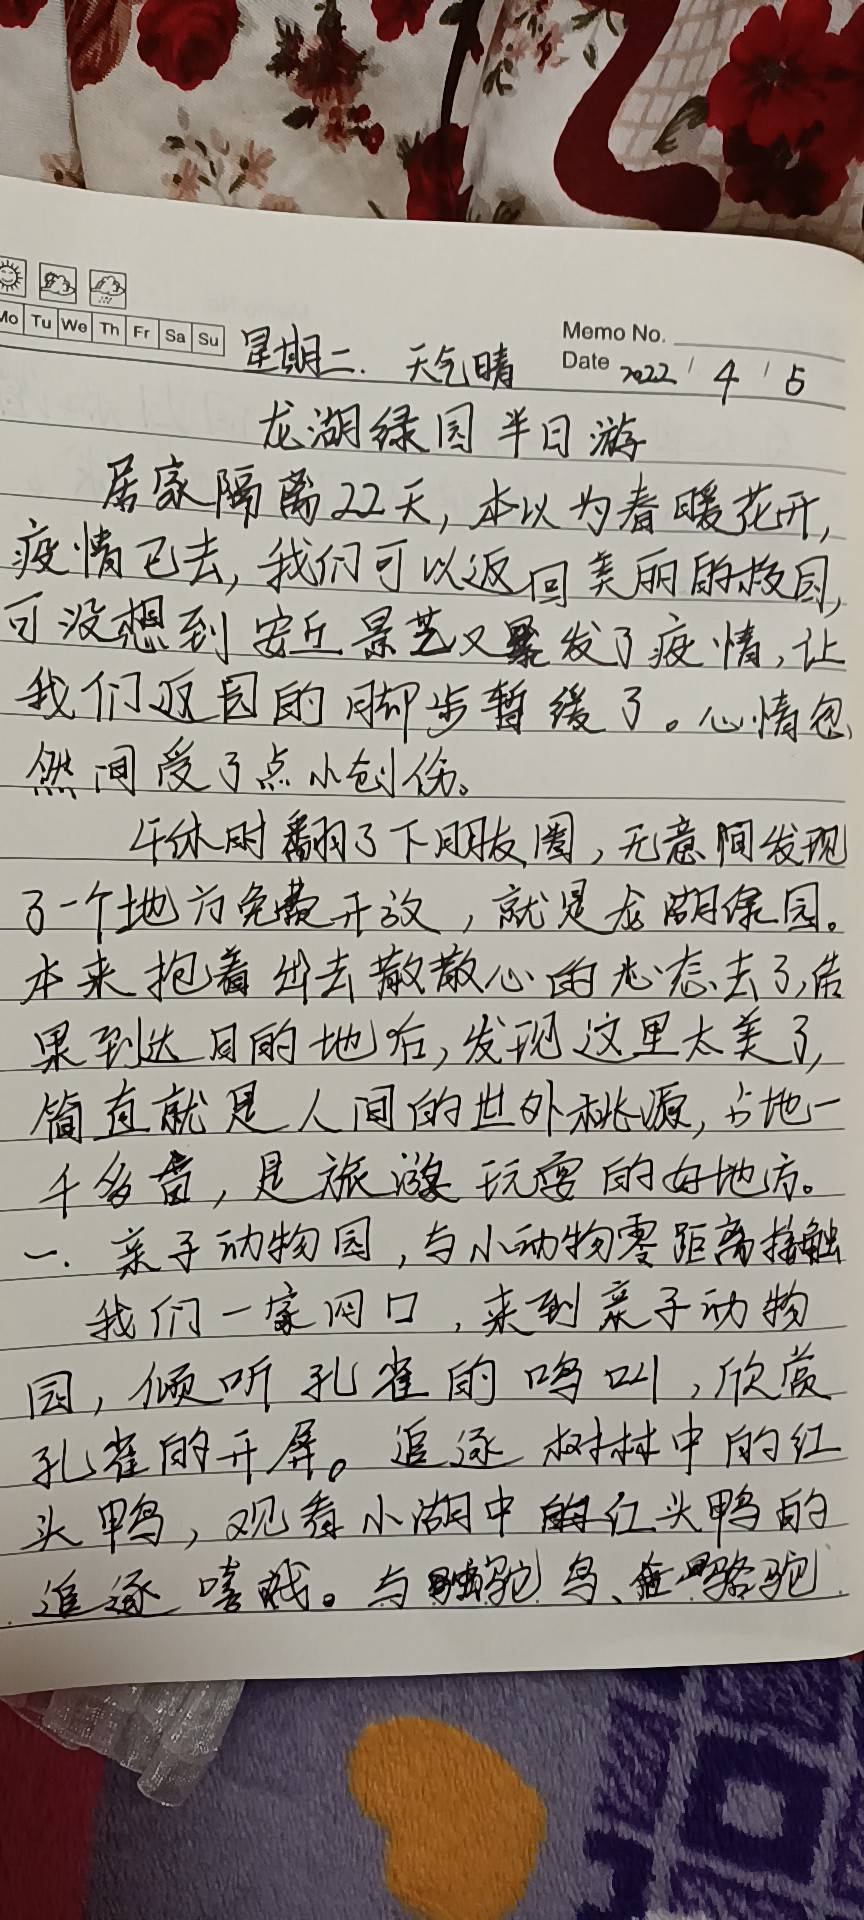 Mo Tu We Th Fr Sa Su
星期二. 天气晴
Memo No.
Date 2022 / 4 / 5
龙湖绿园半日游
居家隔离22天,本以为春暖花开,
疫情已去,我们可以返回美丽的校园,
可没想到安丘景芝又暴发了疫情,让
我们返园的脚步暂缓了。心情忽
然间受了点小创伤。
午休时翻了下朋友圈,无意间发现
了一个地方免费开放,就是龙湖绿园。
本来抱着出去散散心的心态去了,结
果到达目的地后,发现这里太美了,
简直就是人间的世外桃源,占地一
千多亩,是旅游玩耍的好地方。
一.亲子动物园,与小动物零距离接触
我们一家四口,来到亲子动物
园,倾听孔雀的鸣叫,欣赏
孔雀的开屏。追逐树林中的红
头鸭,观看小湖中的红头鸭的
追逐嘻戏。与鸵鸟、骆驼